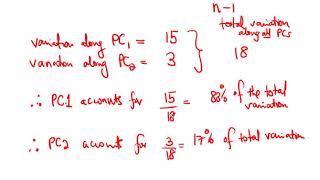 n-1
total variation
along all PCs
variation along PC1 = 15
variation along PC2 = 3
18
∴ PC1 accounts for 15/18 = 83% of the total
variation
∴ PC2 accounts for 3/18 = 17% of total variation